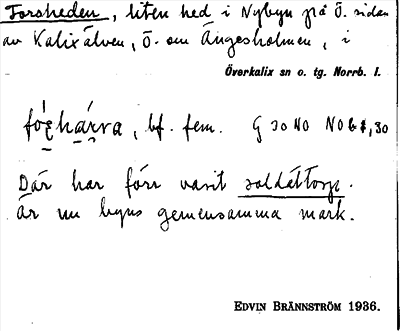 Forsheden, liten hed i Nybyn på Ö. sidan
av Kalixälven, Ö. om Ängesholmen, i
Överkalix sn o. tg. Norrb. l.
bf. fem. G 30 40
Där har förr varit soldattorp.
Är nu byns gemensamma mark.
EDVIN BRÄNNSTRÖM 1936.